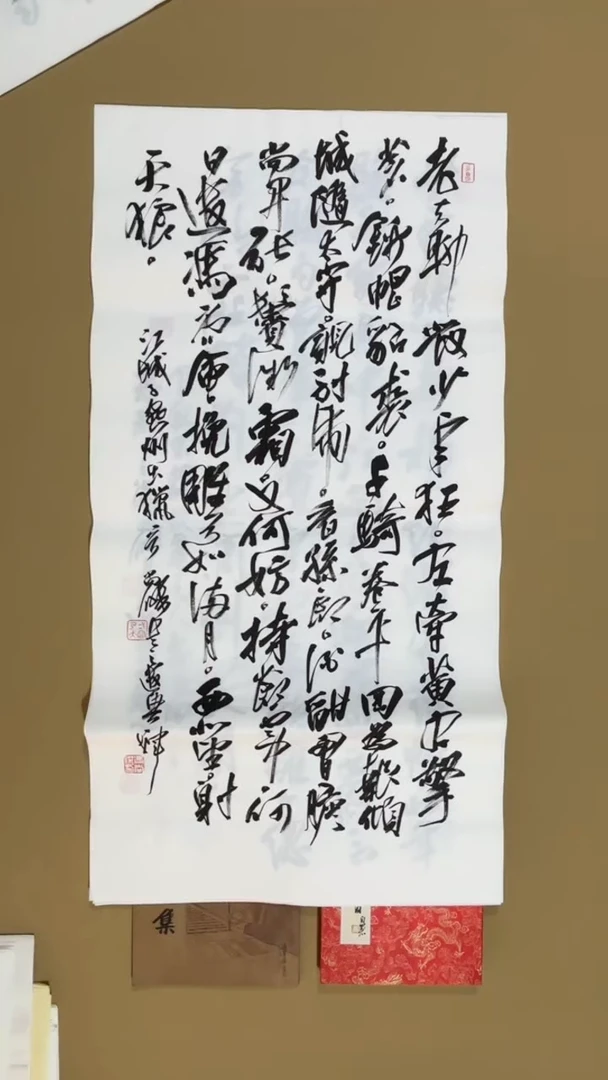 老夫聊發少年狂。左牽黃右擎
蒼。錦帽貂裘。千騎卷平岡為報傾
城隨太守。親射虎。看孫郎。酒酣胸膽
尚開張。鬢微霜。又何妨。持節雲中何
日遣馮唐。會挽雕弓如滿月。西北望。射
天狼。
江城子密州出獵
集